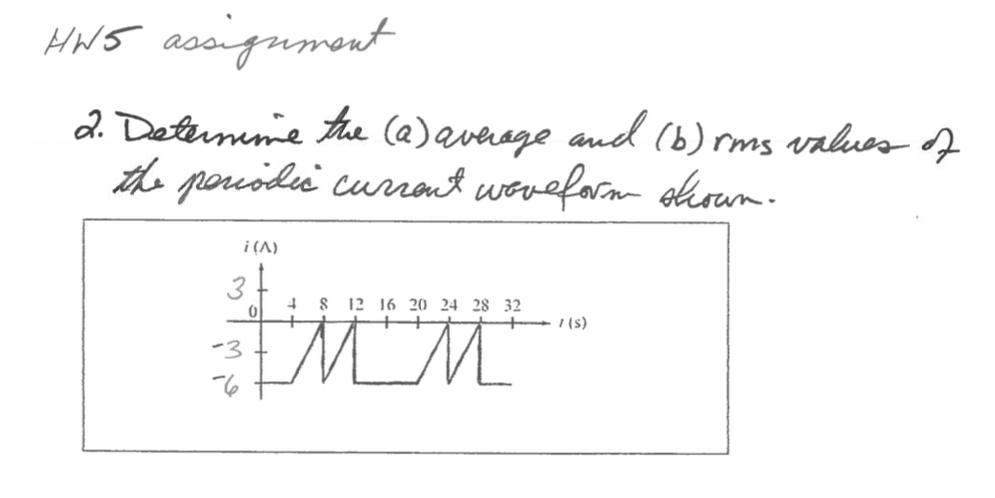 HW5 assignment
2. Determine the (a) average and (b) rms values of
the periodic current waveform shown.
i (A)
3
0 4 8 12 16 20 24 28 32
t (s)
-3
-6